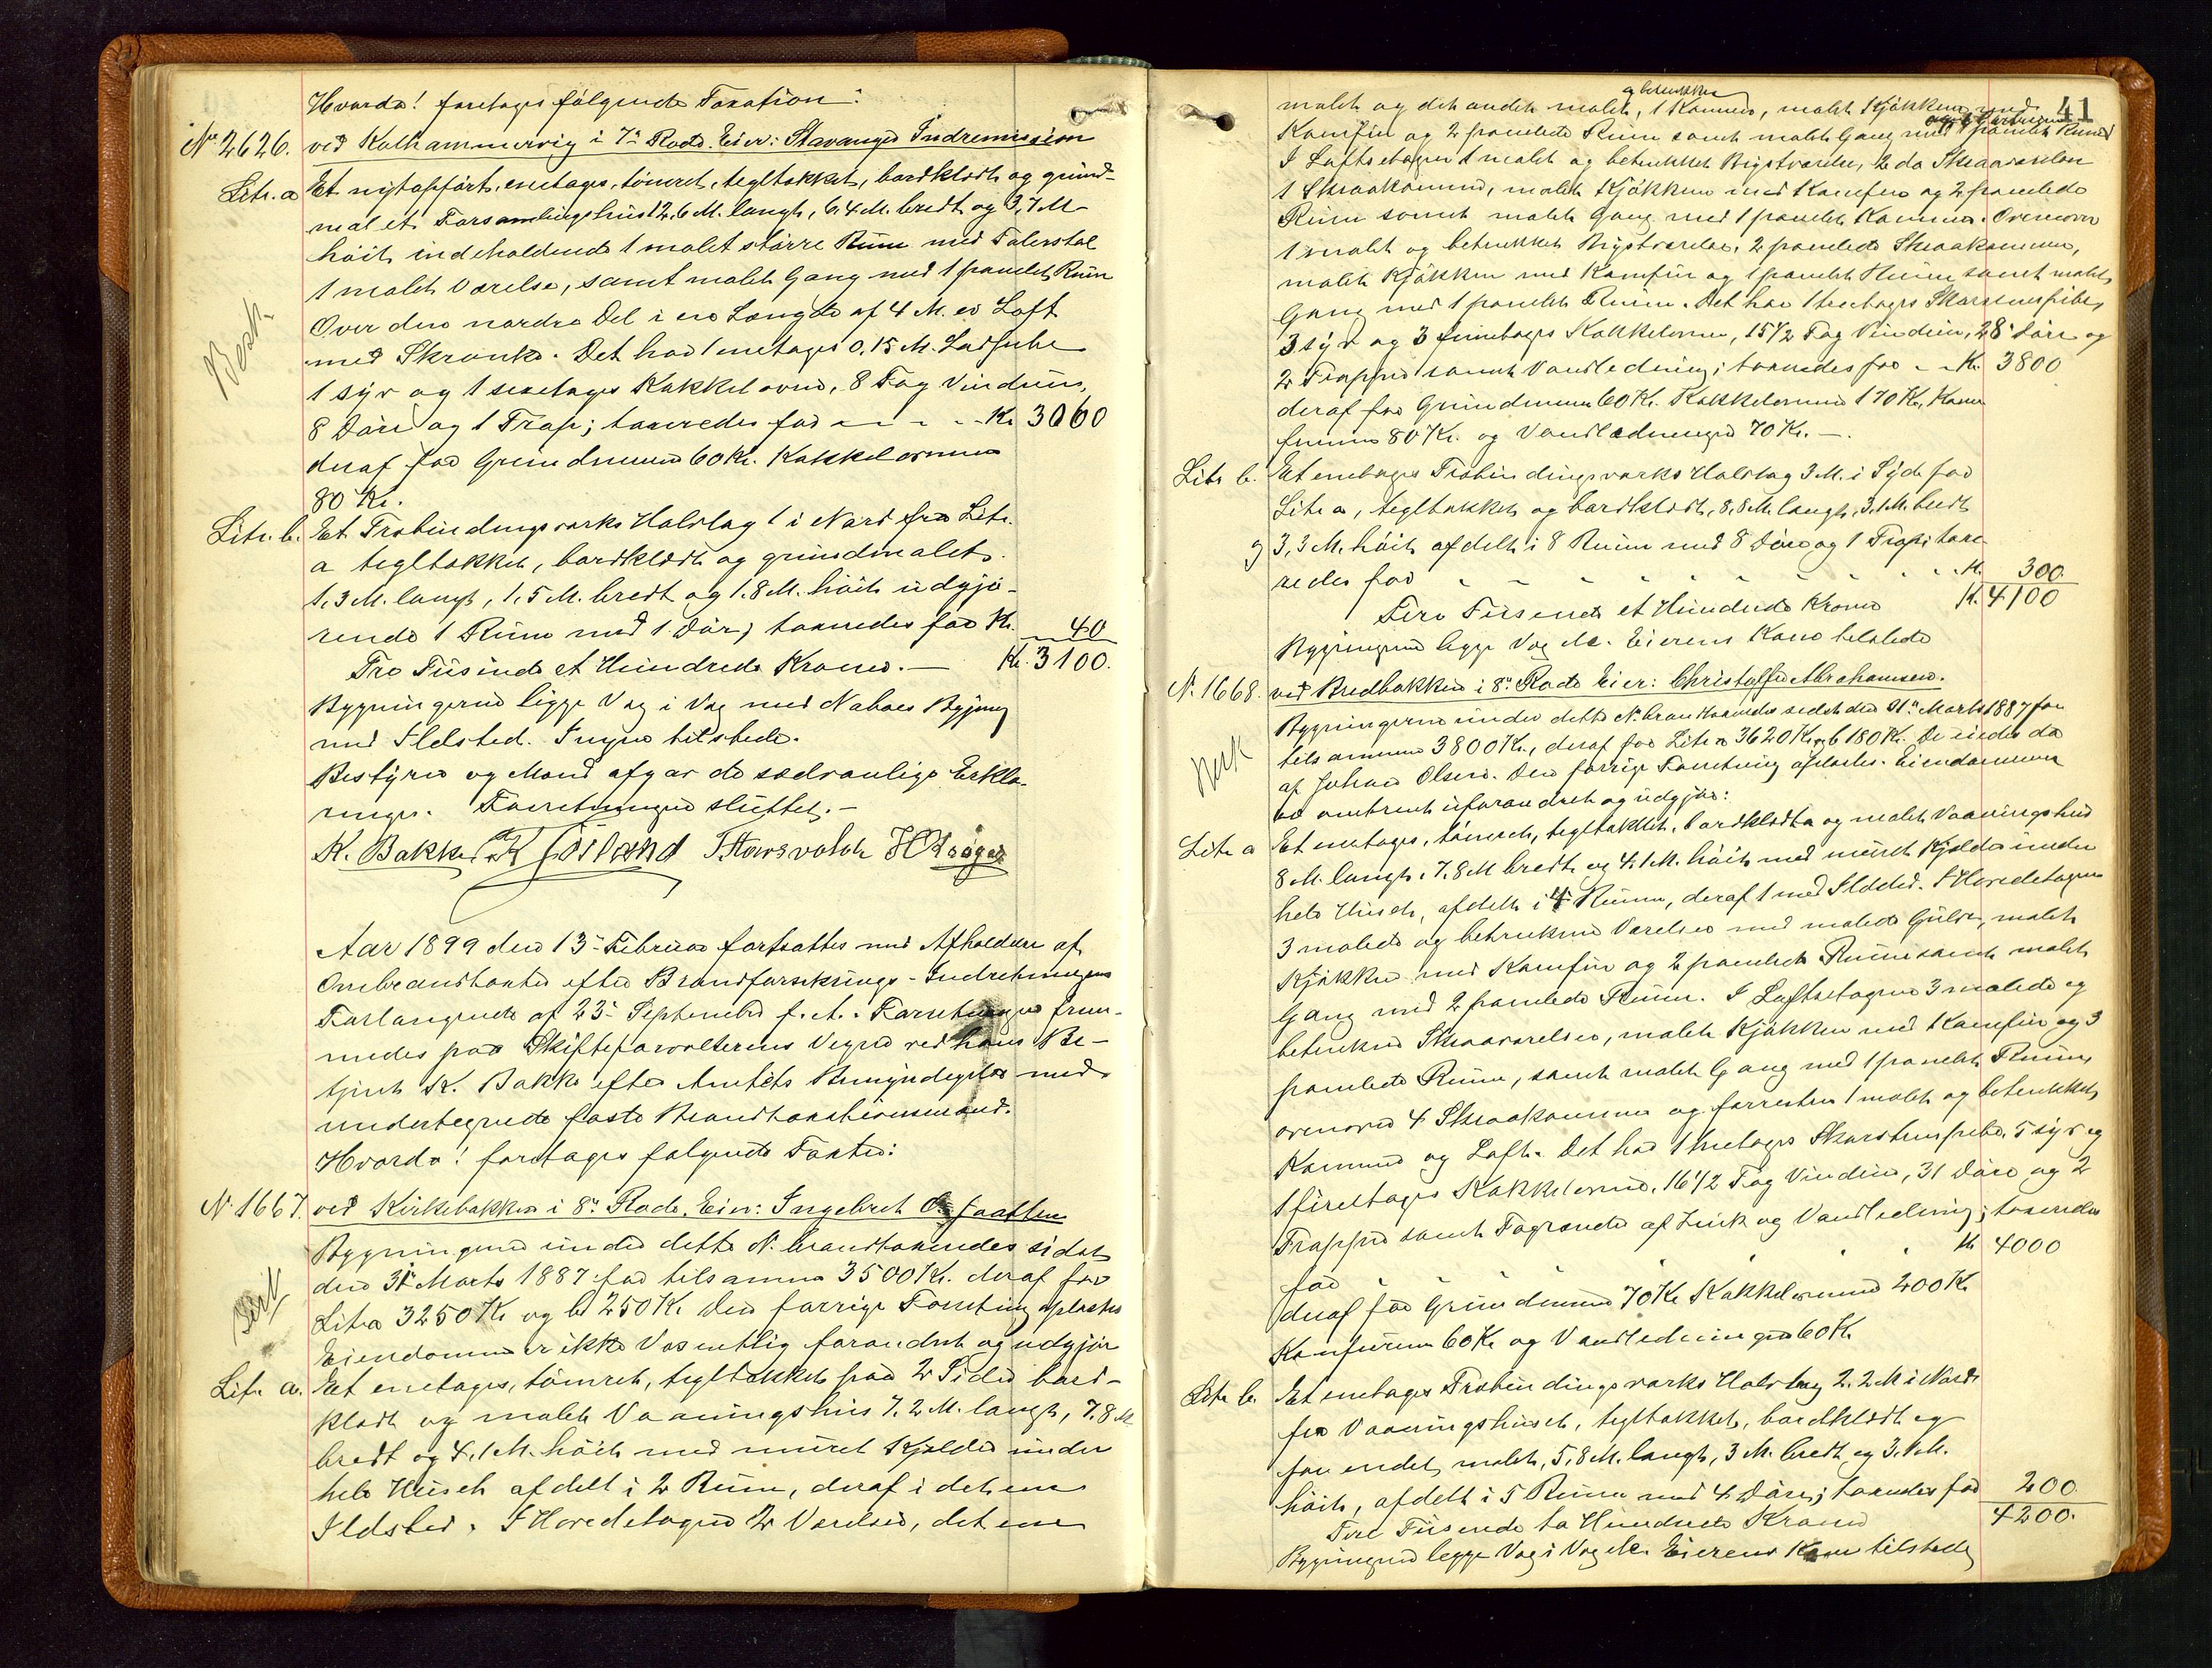 Hvorda! foretoges følgende Taxation:
No 2626. ved Kalhammervig i 7de Rode. Eier: Stavanger Indremission
Litr. a Et nyt opført, enetages, tømret, tegltækket, bordklædt og grund-
malet Forsamlingshus 12.6 M. langt, 6.4 M. bredt og 3,7 M
høit indeholdende 1 malet større Rum med Talerstol
1 malet Værelse, samt malet Gang med 1 panelet Rum
Over den nordre Del i en Længde af 4 M. er Loft
med Skraatag. Det har 1 enetages 0.15 M.
1 syv og 1 sexetages Kakkelovne, 8 Fag Vinduer,
8 Døre og 1 Trap; taxeredes for - - - - Kr. 3060
deraf for Grundmuren 60 Kr. Kakkelovnene
80 Kr.
Litr. b. Et Trebindingsværks Halvtag 1 i Nord fra Litr.
a tegltækket, bordklædt og grundmalet
1,3 M. langt, 1,5 M. bredt og 1.8 M. høit udgjø-
rende 1 Rum med 1 Dør; taxeredes for Kr. 40
Tre Tusinde et Hundrede Kroner. — Kr. 3100.
Bygningerne ligge Væg i Væg med Naboes Bygning
med Ildsted. Ingen tilstede.
Bestyrer og Mænd afgav de sædvanlige Erklæ-
ringer. Forretningen sluttet. —
K. Bakke
Aar 1899 den 13de Februar fortsattes med Afholdelse af
Ombrandtaxter efter Brandforsikrings-Indretningens
Forlangende af 23de September f. A. Forretningen frem-
medes paa Skifteforvalterens Vegne ved hans Be-
tjent K. Bakke efter Amtets Bemyndigelse med
undertegnede faste Brandtaxationsmænd.
Hvorda! foretoges følgende Taxter:
No 1667. ved Kirkebakken i 8de Rode. Eier: Ingebret O. Joatten
Bygningerne under dette No brandtaxeredes sidst
den 31te Marts 1887 for tilsammen 3500 Kr. deraf for
Litr a 3250 Kr og b 250 Kr. Den forrige Forretning oplæstes
Eiendommen er ikke væsentlig forandret og udgjør
Litr a. Et enetages, tømret, tegltækket paa 2 Sider bord-
klædt og malet Vaaningshus 7.2 M. langt, 7.8 M
bredt og 4,1 M. høit med muret Kjelder under
hele Huset afdelt i 2 Rum, deraf i det ene
Ildsted. I Hovedetagen 2 Værelser, det ene
41
og betrukken
malet og det andet malet, 1 Kammer, malet Kjøkken med
Komfur og 2 panelede Rum samt malet Gang med 1 panelet Rum
I Loftsetagen 1 malet og betrukket Kvistværelse, 2 do Skraaværelser
1 Skraakammer, malet Kjøkken med Komfur og 2 panelede
Rum samt malet Gang med 1 panelet Kammer. Ovenover
1 malet og betrukket Kvistværelse, 2 panelede Skraakammere,
malet Kjøkken med Komfur og 1 panelet Rum samt malet
Gang med 1 panelet Rum. Det har 1 treetages Skorstenspibe,
3 syv og 3 femetages Kakkelovne, 15 1/2 Fag Vinduer, 28 Døre og
2 Trapper samt Vandledning; taxeredes for - - Kr. 3800
deraf for Grundmuren 60 Kr. Kakkelovnene 170 Kr, Kom
furene 80 Kr. og Vandledningen 70 Kr. —.
Litr b. Et enetages Trebindingsværks Halvtag 3 M. i Syd for
Litr a, tegltækket og bordklædt, 8,8 M. langt, 3,1 M. bredt
og 3,3 M. høit afdelt i 8 Rum med 8 Døre og 1 Trap; taxe
redes for - - - - - - Kr. 300
Fire Tusende et Hundrede Kroner Kr. 4100
Bygningerne ligge Væg &c. Eierens Kone tilstede
No 1668. ved Bredbakken i 8de Rode Eier: Christoffer Abrahamsen.
Bygningerne under dette No brandtaxeredes sidst den 31te Marts 1887 for
tilsammen 3800 Kr., deraf for Litr a 3620 Kr, b 180 Kr. De eiedes da
af Johan Olsen. Den forrige Forretning oplæstes. Eiendommen
er omtrent uforandret og udgjør:
Litr a Et enetages, tømret, tegltækket, bordklædt og malet Vaaningshus
8 M. langt, 7.8 M bredt og 4.1 M. høit med muret Kjelder under
hele Huset, afdelt i 4 Rum, deraf 1 med Ildsted. I Hovedetagen
3 malede og betrukne Værelser med malede Gulve, malet
Kjøkken med Komfur og 2 panelede Rum samt malet
Gang med 2 panelede Rum. I Loftsetagen 3 malede og
betrukne Skraaværelser, malet Kjøkken med Komfur og 3
panelede Rum, samt malet Gang med 1 panelet Rum,
ovenover 4 Skraakammere og forresten 1 malet og betrukket
Kammer og Loft. Det har 1 treetages Skorstenspibe, 5 syv og
1 fireetages Kakkelovne, 16 1/2 Fag Vinduer, 31 Døre og 2
Trapper samt Tagrender af Zink og Vandledning; taxeredes
for - - - - - Kr 4000
deraf for Grundmuren 70 Kr Kakkelovnene 200 Kr
Komfurene 60 Kr og Vandledningen 60 Kr
Litr b. Et enetages Trebindingsværks Halvtag 2.2 M i Nord
fra Vaaningshuset, tegltækket, bordklædt og
for endel malet, 5,8 M. langt, 3 M. bredt og 3.1 M.
høit, afdelt i 5 Rum med 4 Døre; taxeredes for 200
Fire Tusende to Hundrede Kroner 4200.
Bygningerne ligge Væg i Væg &c. Eierens Kone tilstede